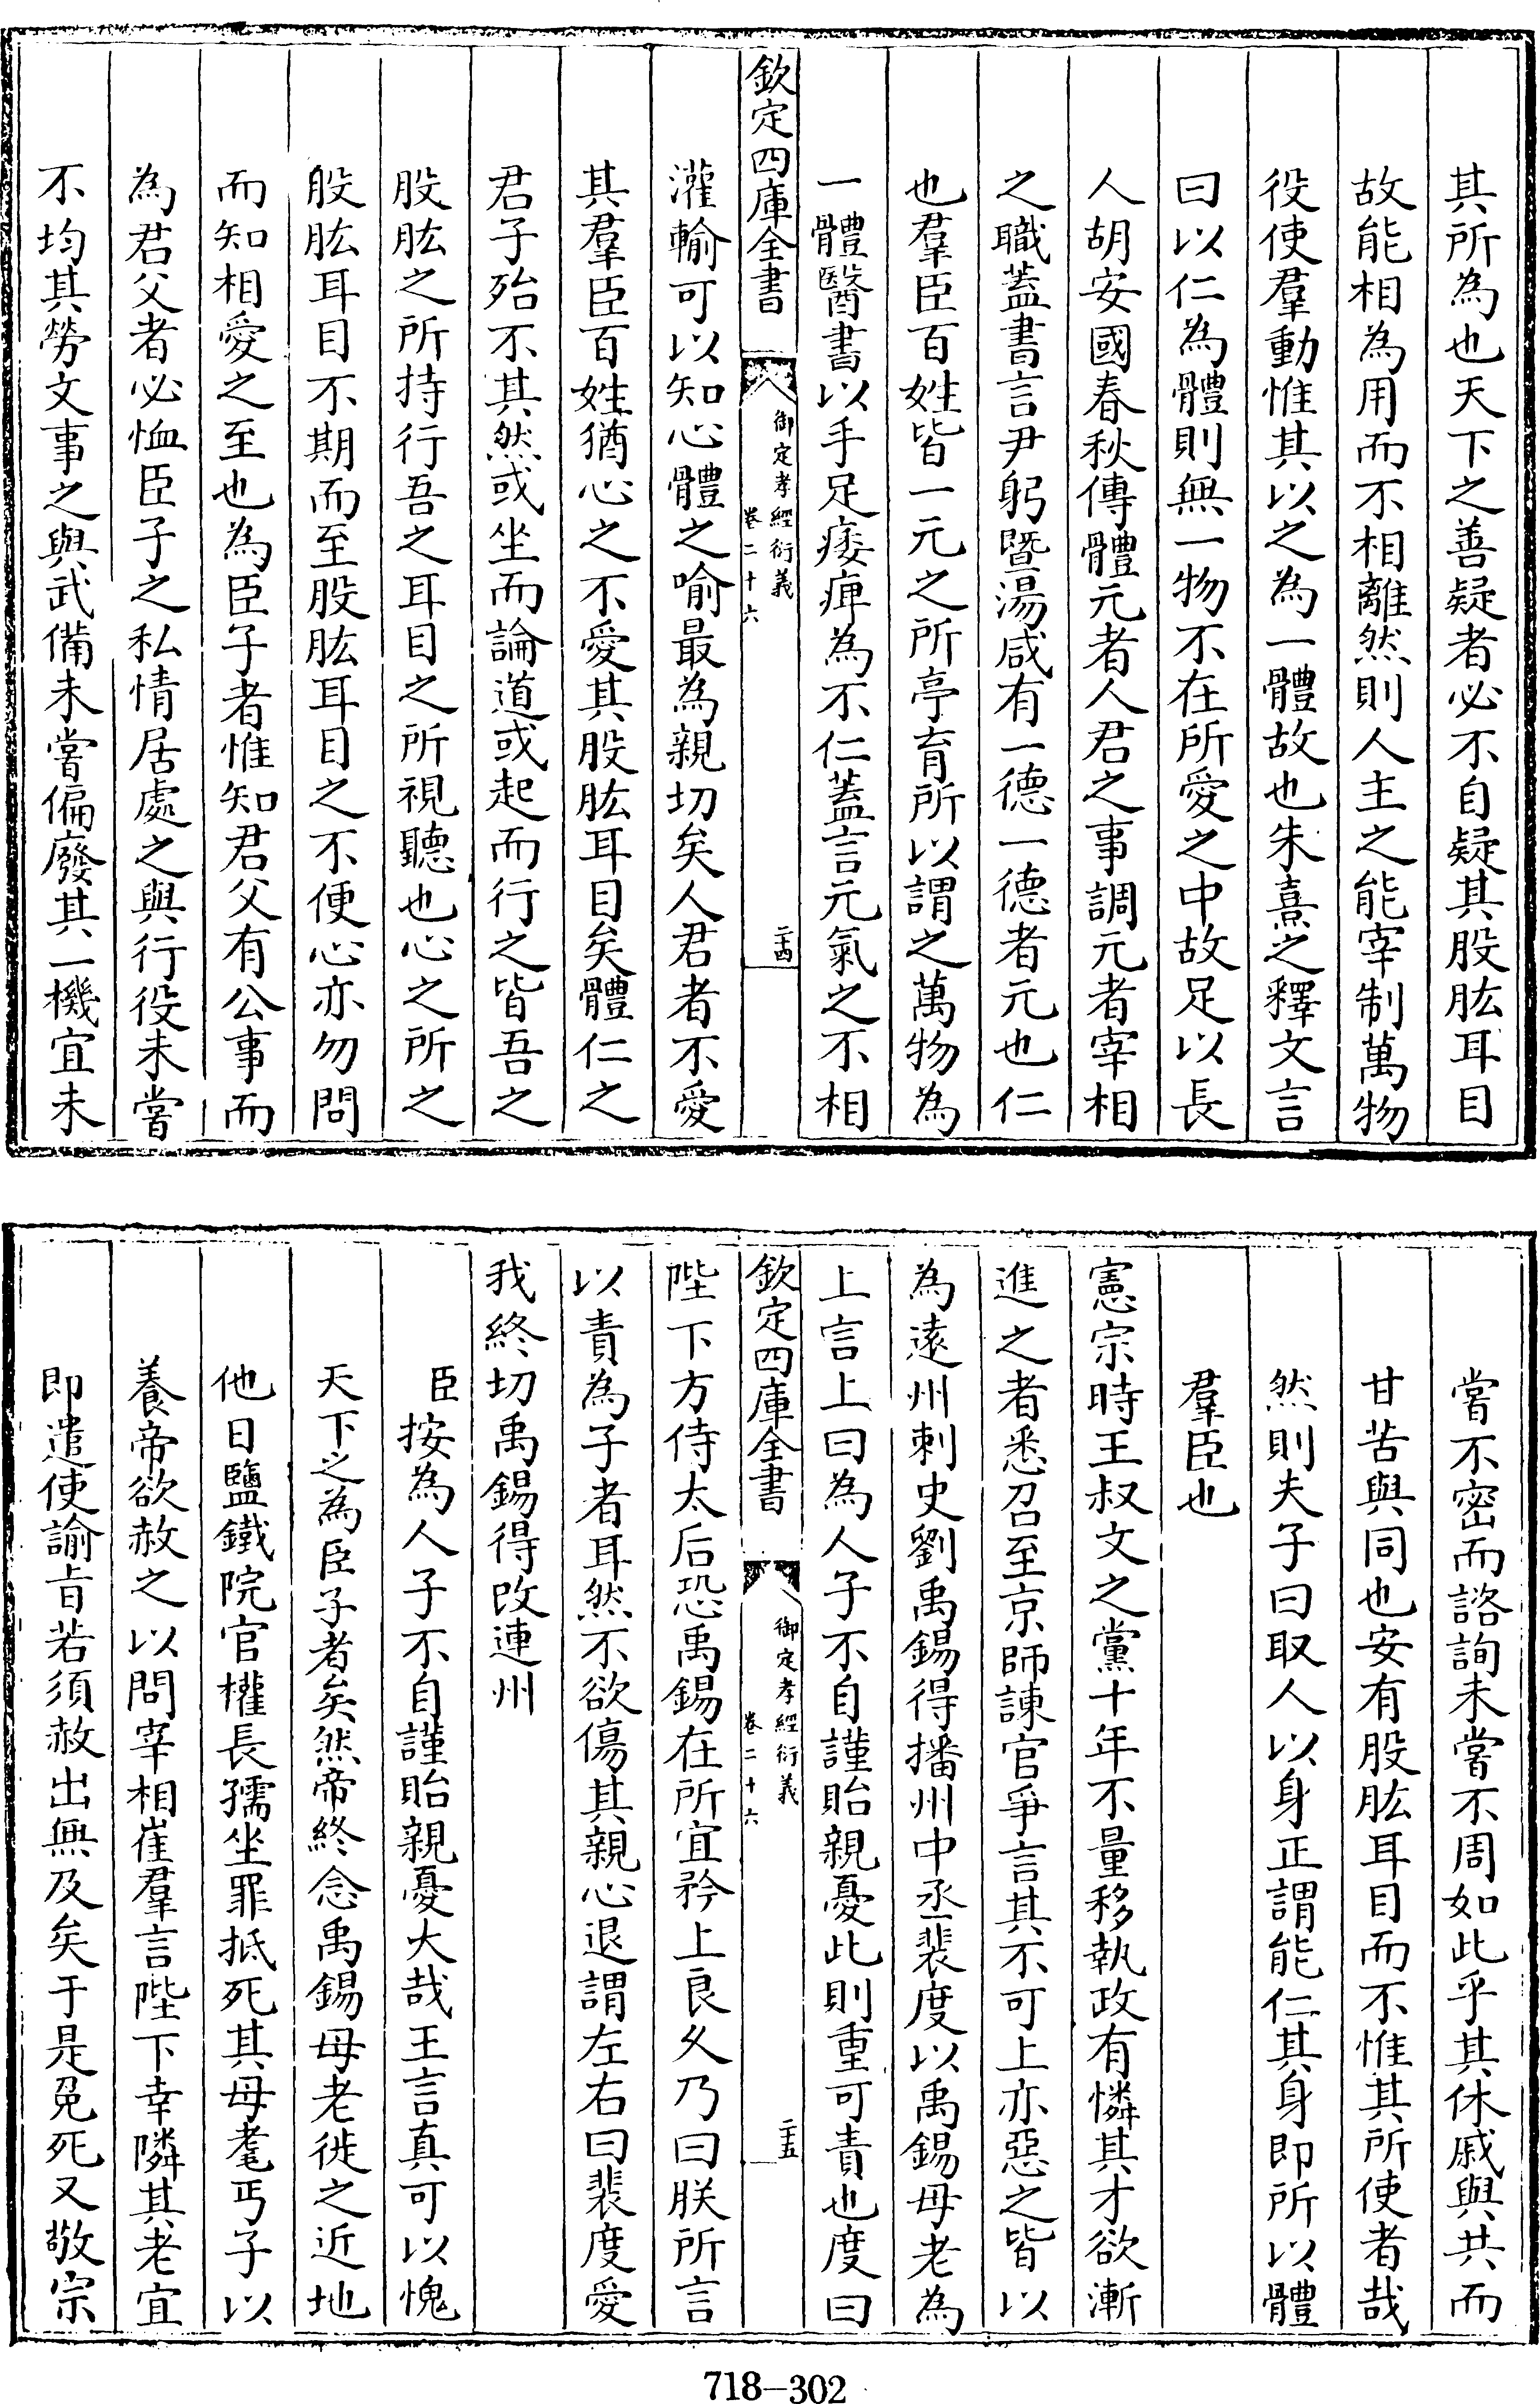 其所為也天下之善疑者必不自疑其股肱耳目
故能相為用而不相離然則人主之能宰制萬物
役使羣動惟其以之為一體故也朱熹之釋文言
曰以仁為體則無一物不在所愛之中故足以長
人胡安國春秋傳體元者人君之事調元者宰相
之職蓋書言尹躬暨湯咸有一德一德者元也仁
也羣臣百姓皆一元之所亭育所以謂之萬物為
一體醫書以手足痿痺為不仁蓋言元氣之不相
欽定四庫全書
御定孝經衍義
卷二十六
二十四
灌輸可以知心體之喻最為親切矣人君者不愛
其羣臣百姓猶心之不愛其股肱耳目矣體仁之
君子殆不其然或坐而論道或起而行之皆吾之
股肱之所持行吾之耳目之所視聽也心之所之
股肱耳目不期而至股肱耳目之不便心亦勿問
而知相愛之至也為臣子者惟知君父有公事而
為君父者必恤臣子之私情居處之與行役未嘗
不均其勞文事之與武備未嘗偏廢其一機宜未
嘗不密而諮詢未嘗不周如此乎其休戚與共而
甘苦與同也安有股肱耳目而不惟其所使者哉
然則夫子曰取人以身正謂能仁其身即所以體
羣臣也
憲宗時王叔文之黨十年不量移執政有憐其才欲漸
進之者悉召至京師諫官爭言其不可上亦惡之皆以
為遠州刺史劉禹錫得播州中丞裴度以禹錫母老為
上言上曰為人子不自謹貽親憂此則重可責也度曰
欽定四庫全書
御定孝經衍義
卷二十六
二十五
陛下方侍太后恐禹錫在所宜矜上良久乃曰朕所言
以責為子者耳然不欲傷其親心退謂左右曰裴度愛
我終切禹錫得改連州
臣按為人子不自謹貽親憂大哉王言真可以愧
天下之為臣子者矣然帝終念禹錫母老徙之近地
他日鹽鐵院官權長孺坐罪抵死其母耄丐子以
養帝欲赦之以問宰相崔羣言陛下幸隣其老宜
即遣使諭旨若須赦出無及矣于是免死又敬宗
718-302